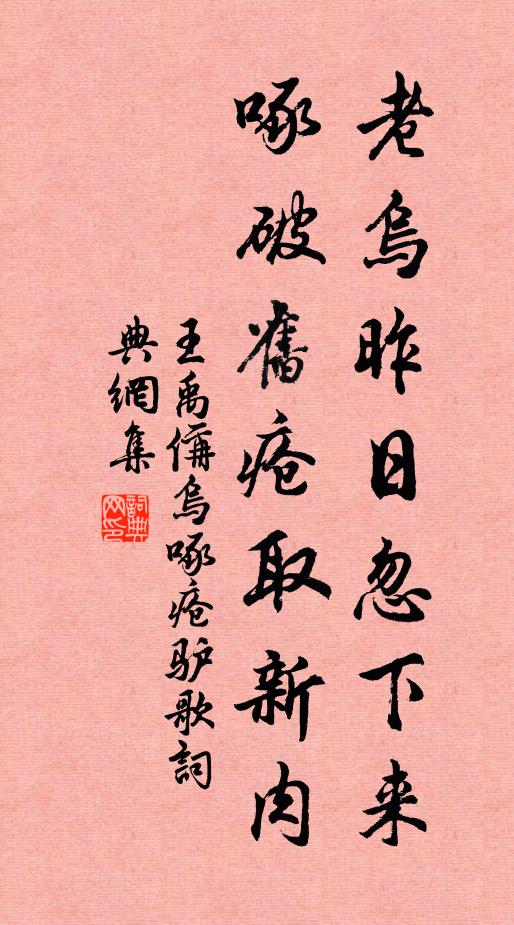 老烏昨日忽下来
啄破舊疮取新肉
王禹偁烏啄疮驴歌詞
典網集
詞典网印